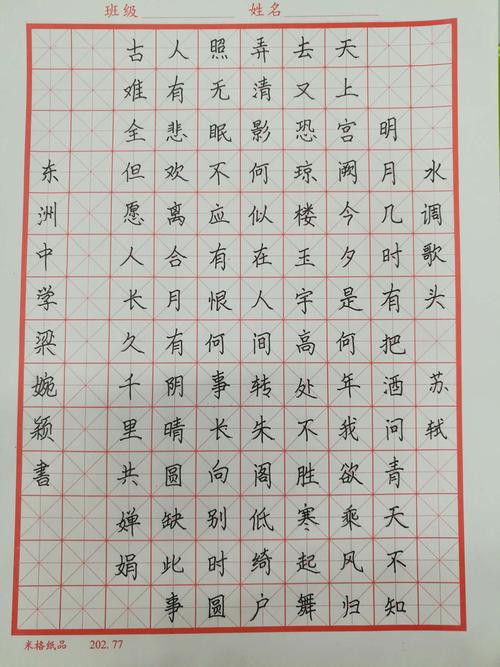 班级 姓名
水调歌头 苏轼
明月几时有把酒问青天不知
天上宫阙今夕是何年我欲乘风归
去又恐琼楼玉宇高处不胜寒起舞
弄清影何似在人间转朱阁低绮户
照无眠不应有恨何事长向别时圆
人有悲欢离合月有阴晴圆缺此事
古难全但愿人长久千里共婵娟
东洲中学梁婉颖書
米格纸品 202.77